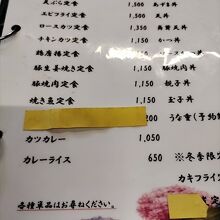 天ぷら定食 1,500 あなま丼
エビフライ定食 1,500 天丼
ロースカツ定食 1,350 海鮮天丼
チキンカツ定食 1,150 かつ丼
鶏唐揚定食 1,150
豚生姜焼き定食 1,150 豚焼肉丼
豚焼肉定食 1,150 親子丼
焼き魚定食 1,150 玉子丼
うな重(予約
カツカレー 1,050
カレーライス 650 ※冬季限定
カキフライ
各種単品はお尋ねください。